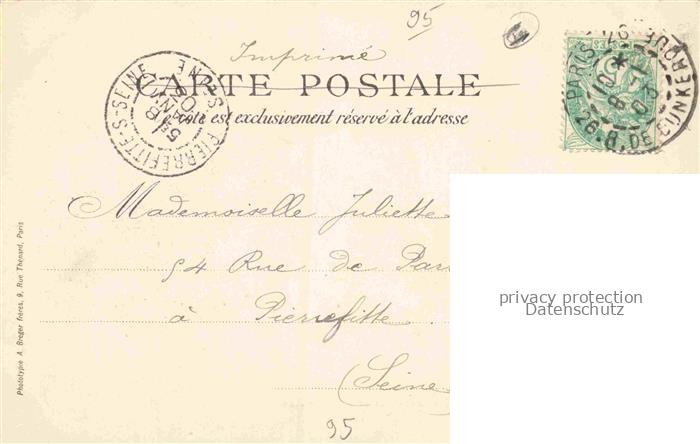 95
Imprimé
CARTE POSTALE
Ce côté est exclusivement réservé à l'adresse
PIERREFITTE-S-SEINE
SEINE
PARIS
26. B. DE DUNKERQUE
Mademoiselle Juliette
54 Rue de Pari
à Pierrefitte
(Seine
privacy protection
Datenschutz
Phototypie A. Breger frères, 9, Rue Thénard, Paris
95